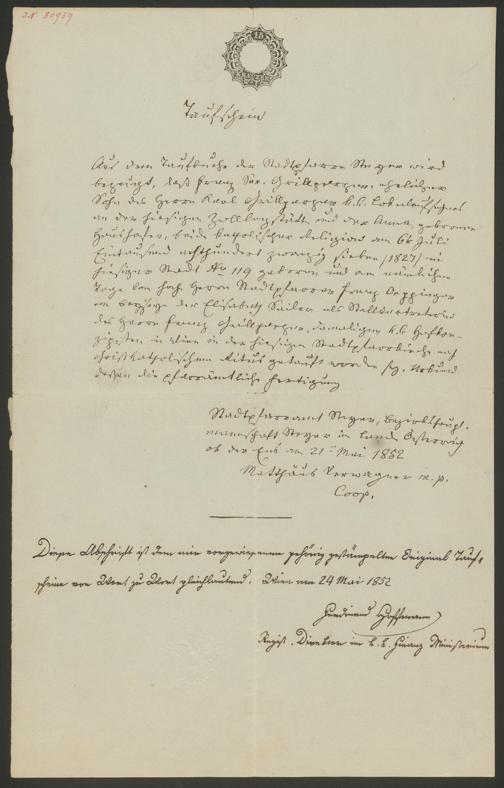 I.N. 80959
15
KREUZER
Taufschein
Aus dem Taufbuche der Stadtpfarre Steyer wird
bezeugt, daß Franz Ser. Grillparzer, ehelicher
Sohn des Herrn Karl Grillparzer k.k.
an der hiesigen und der Anna, geborenen
beide katholischer Religion am 6t Juli
Eintausend achthundert zwanzig sieben /1827/ in
hiesiger Stadt No 119 geboren und am nämlichen
Tage von Herrn Stadtpfarrer Franz
im Beyseyn der Elisabeth als Stellvertreterin
des Herrn Franz Grillparzer, damaligen k.k. Hofkon-
zipisten in Wien in der hiesigen Stadtpfarrkirche nach
christkatholischem Ritus getauft worden sey. Urkund
dessen die pfarrämtliche Fertigung
Stadtpfarramt Steyer, Bezirkshaupt-
mannschaft Steyer im Lande Österreich
ob der Ens am 21t Mai 1852
Matthäus Verwagner m.p.
Coop.
Diese Abschrift ist dem mir vorgewiesenen gehörig gestämpelten Original Tauf-
scheine von Wort zu Wort gleichlautend. Wien am 24 Mai 1852
Ferdinand Hoffmann
Regist. Direktor im k.k. Finanz Ministerium